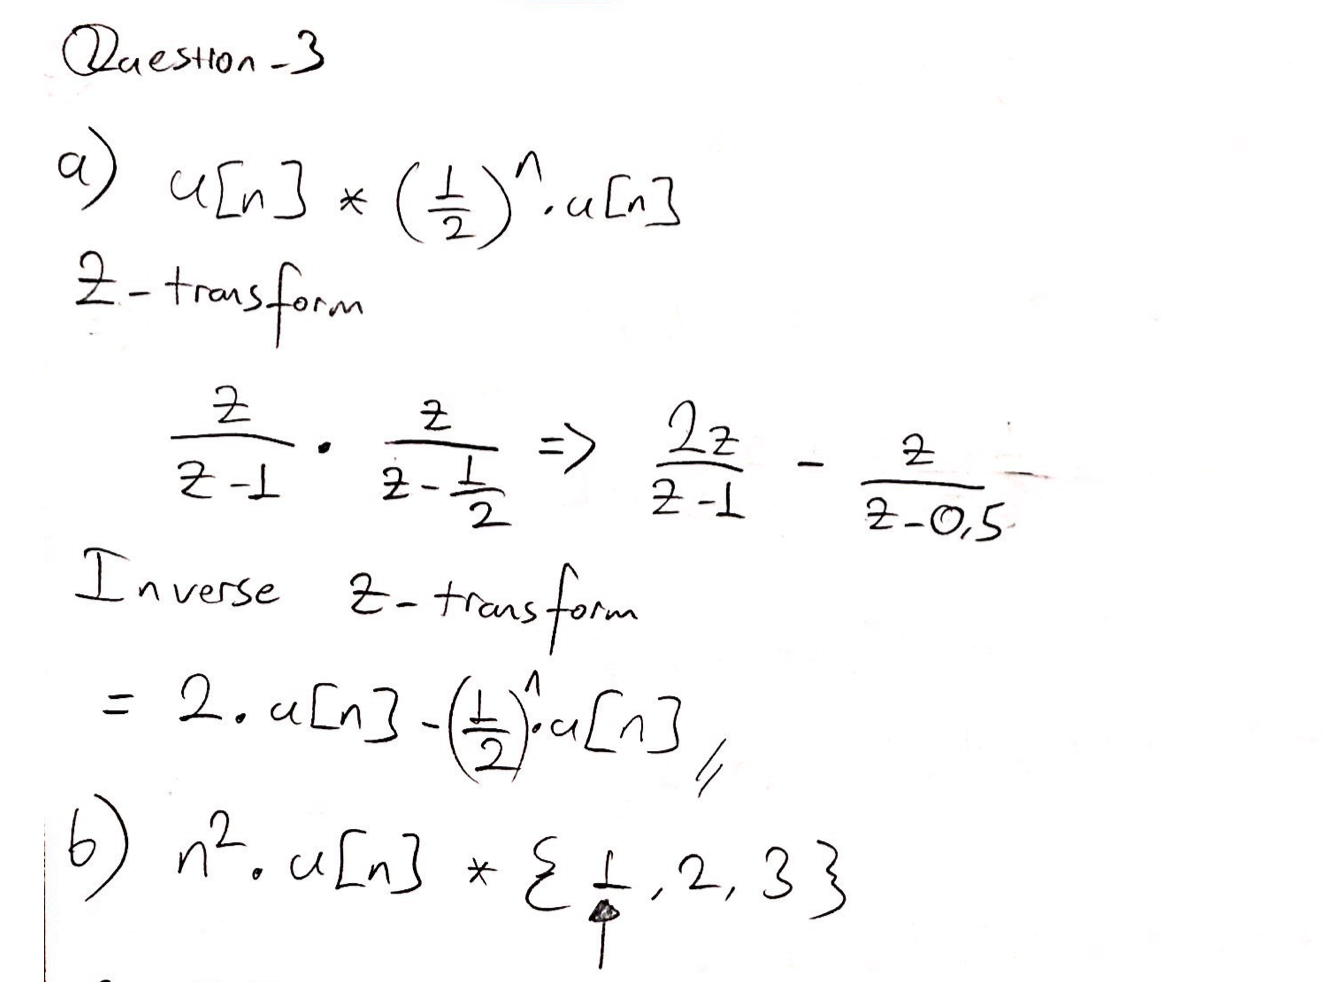 Question-3
a) u[n] * (1/2)^n . u[n]
Z-transform
z/(z-1) . z/(z-1/2) => 2z/(z-1) - z/(z-0,5)
Inverse Z-transform
= 2. u[n] - (1/2)^n . u[n] //
b) n². u[n] * {1, 2, 3}
↑